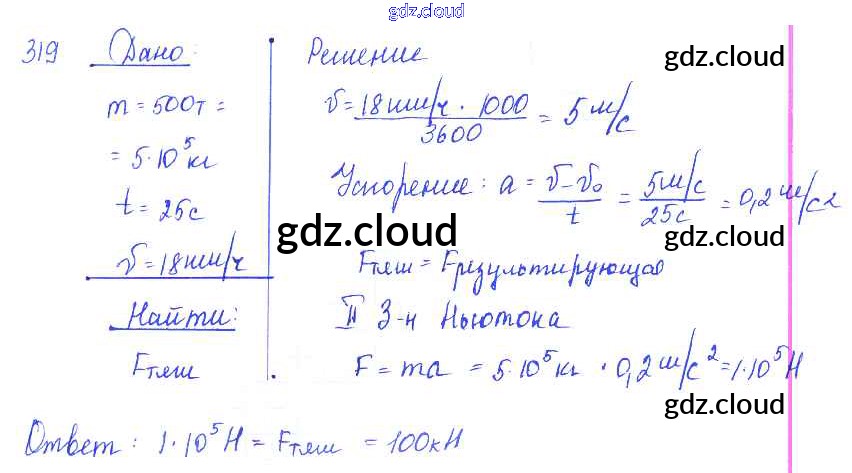 gdz.cloud
319 Дано:
m = 500т =
= 5·10⁵ кг
t = 25с
v = 18 км/ч
Найти:
Fтяж
Решение
gdz.cloud
v = 18 км/ч · 1000 / 3600 = 5 м/с
Ускорение: a = v - v₀ / t = 5 м/с / 25с = 0,2 м/с²
gdz.cloud
gdz.cloud
Fтяж = Fрезультирующая
II З-н Ньютона
F = ma = 5·10⁵ кг · 0,2 м/с² = 1·10⁵ Н
gdz.cloud
Ответ: 1·10⁵ Н = Fтяж = 100кН